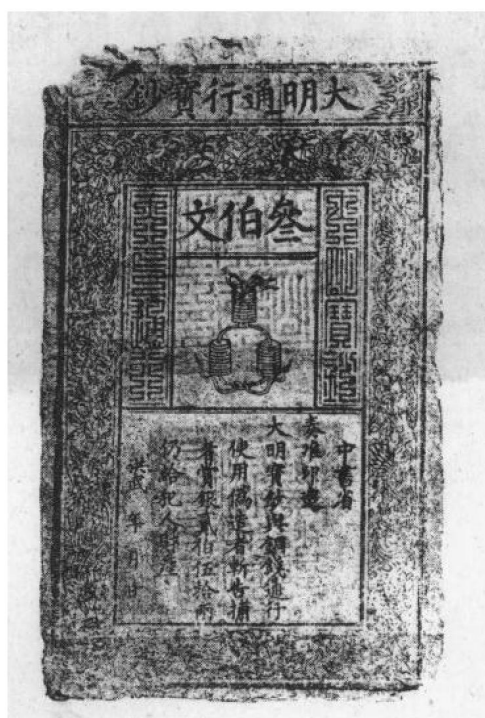 大明通行寶鈔
叁伯文
大明寶鈔
天下通行
中書省
奏准印造
大明寶鈔與銅錢通行
使用偽造者斬告捕
者賞銀貳伯伍拾兩
仍給犯人財產
洪武 年 月 日